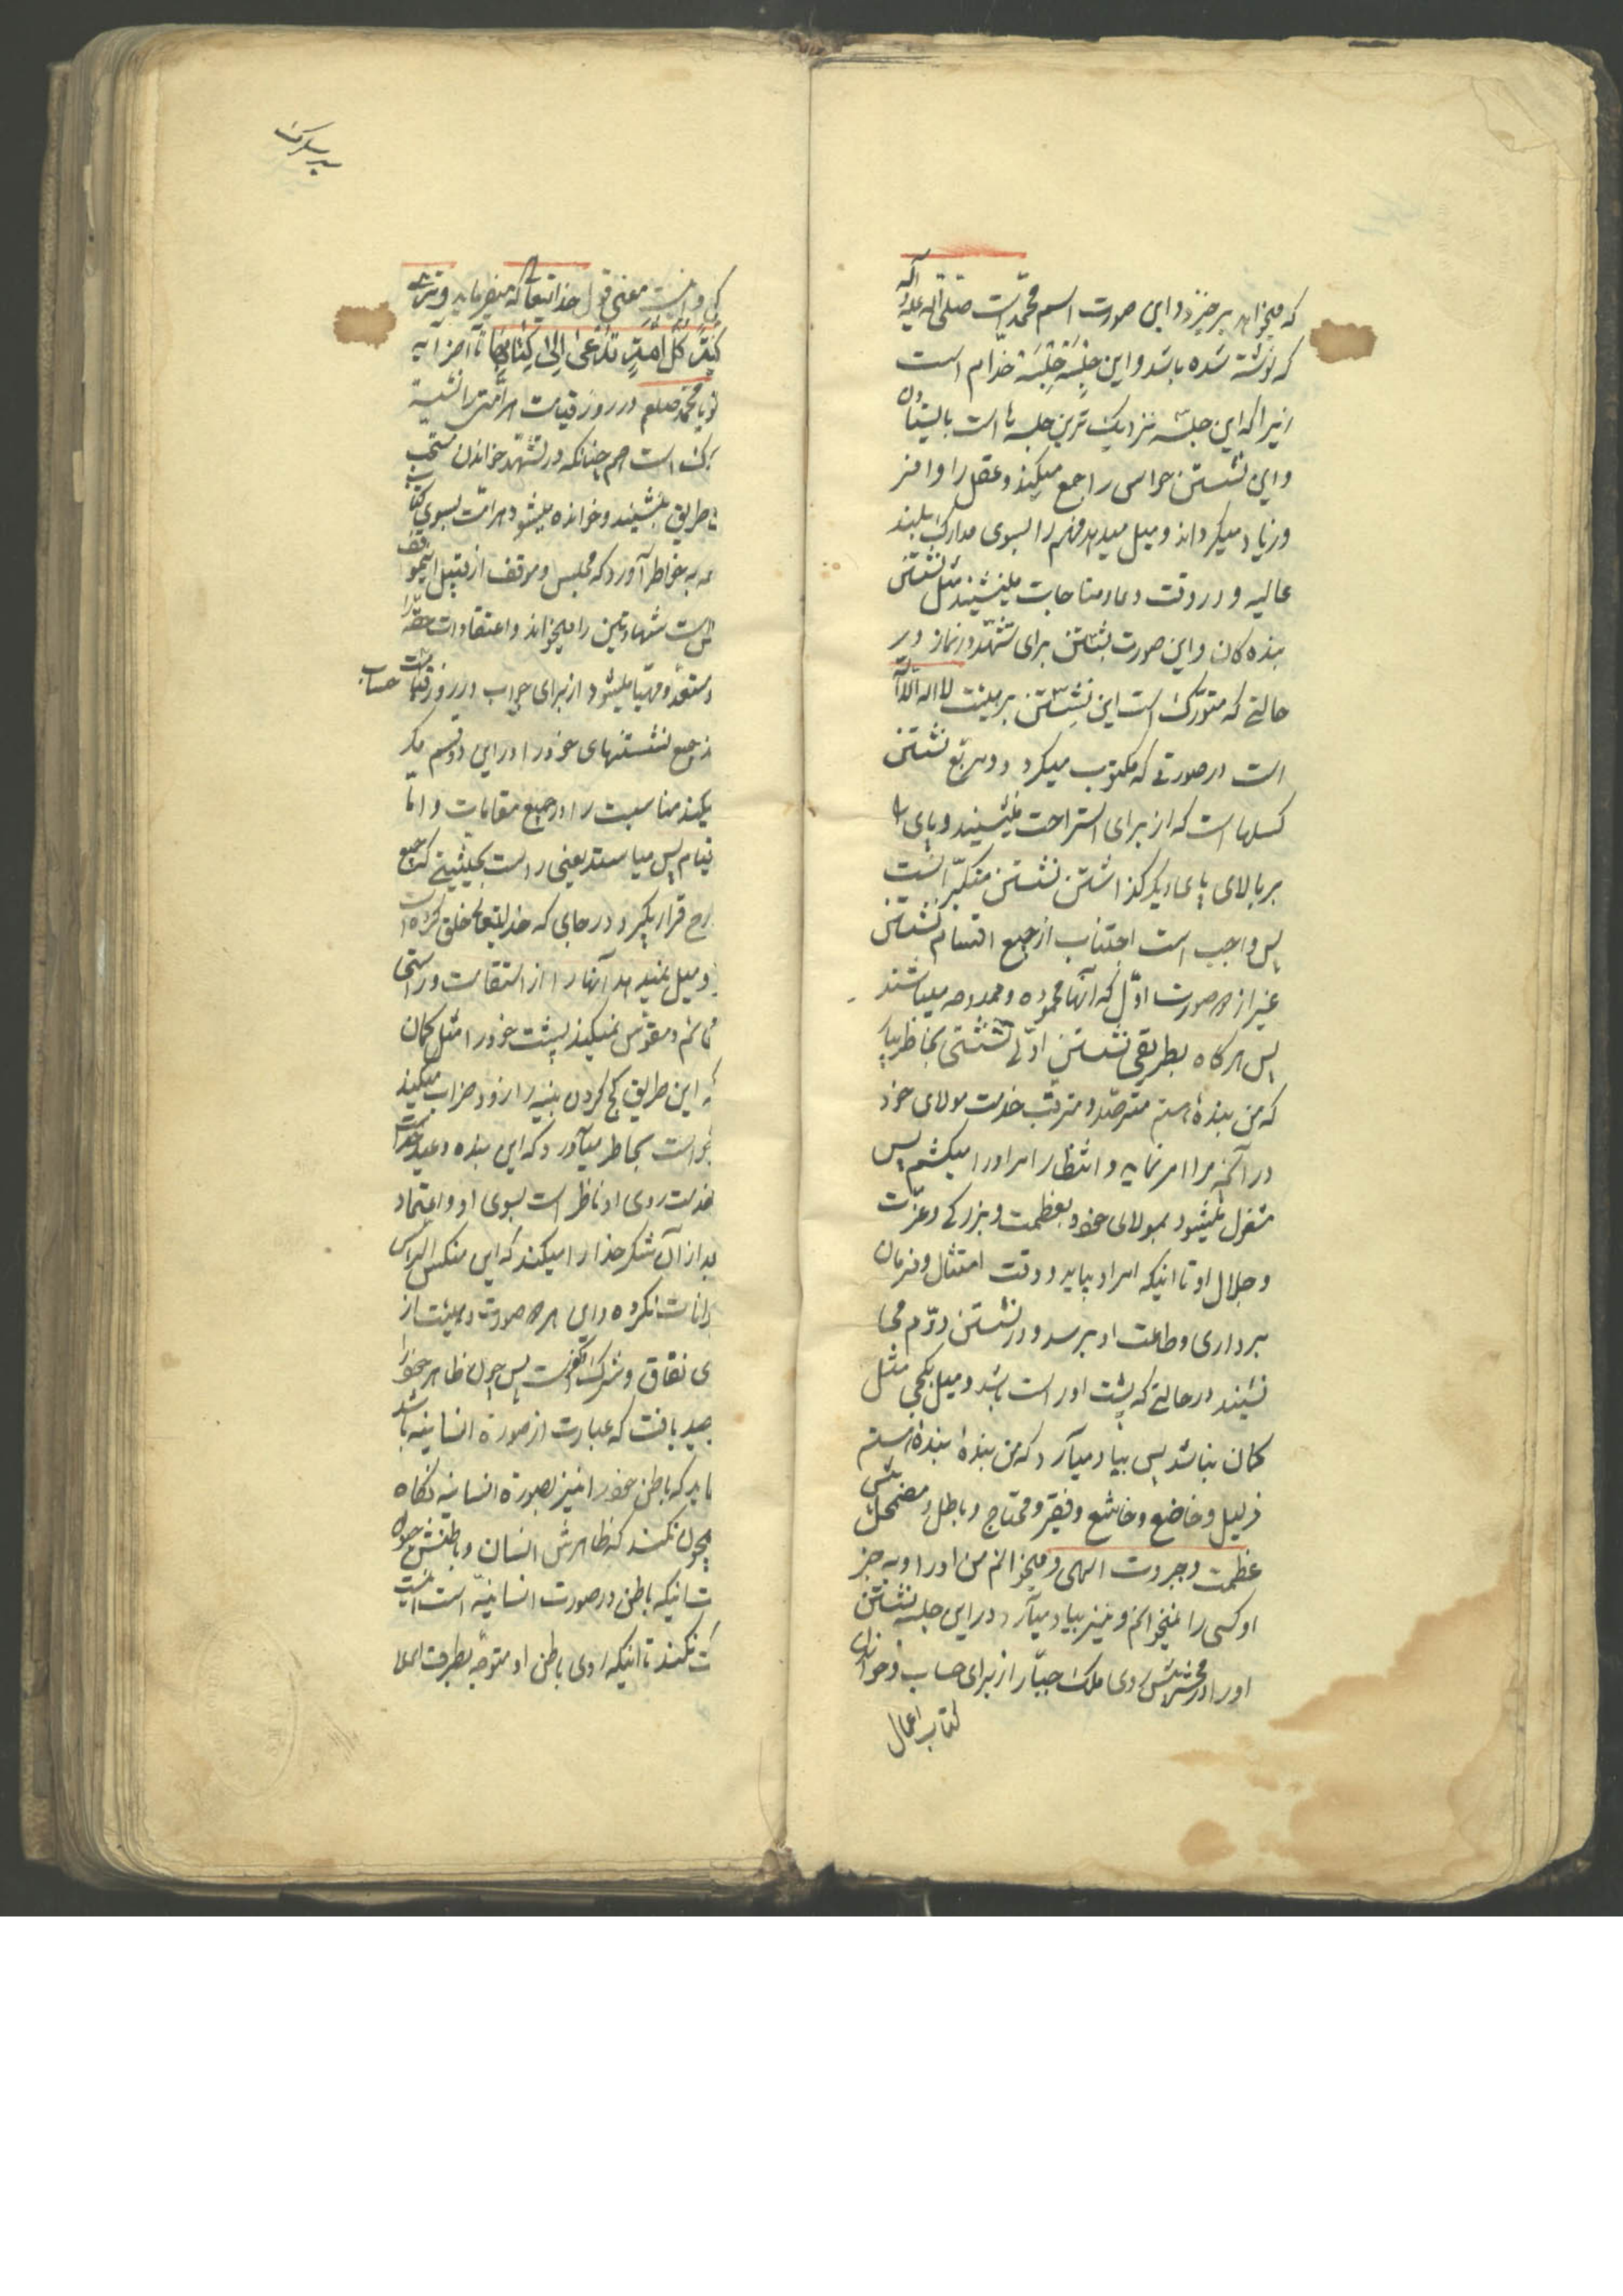 که میخواهد برخیزد و این صورت اسم محمّد است صلّی الله علیه و آله
که نوشته شده باشد و این جلسه جلسهٔ خدّام است
زیرا که این جلسه نزدیک ترین جلسه ها است بایستادن
و این نشستن حواس را جمع میکند و عقل را وافر
و زیاد میگرداند و میل میدهد فهم را بسوی مدارک بلند
عالیه و در وقت دعا و مناجات مینشیند مثل نشستن
بنده کان و این صورت نشستن برای تشهّد در نماز در
حالتی که متورّک است این نشستن بر هیئت لا اله الا الله
است در صورتی که مکتوب میگردد و مربع نشستن
کسلها است که از برای استراحت مینشیند و پای را
بر بالای پای دیگر گذاشتن نشستن متکبّر است
پس واجب است اجتناب از جمیع اقسام نشستن
غیر از دو صورت اوّل که آنها محموده و ممدوحه میباشند
پس هرگاه بطریق نشستن اوّلی نشستی بخاطر بیار
که من بنده هستم مترصّد و مترقّب خدمت مولای خود
در آنچه مرا امر نماید و انتظار امر او را میکشم پس
مشغول میشود بمولای خود بعظمت و بزرگی و عزّت
و جلال او تا اینکه امر او بیاید و وقت امتثال و فرمان
برداری و طاعت او برسد و در نشستن دوّم می
نشیند در حالتی که پشت او راست باشد و میل بکجی مثل
کمان نباشد پس بیاد میآرد که من بندهٔ بنده هستم
ذلیل و خاضع و خاشع و فقیر و محتاج و باطل و مضمحل پیش
عظمت و جبروت الهی و میخوانم من او را و به جز
او کسی را نمیخوانم و نیز بیاد میآرد در این جلسه نشستن
او را در محشر پیش روی ملک جبّار از برای حساب و خواندن
کتاب اعمال
معنی قول خدایتعالی که میفرماید و تری
کلّ امّة تدعی الی کتابها تا آخر آیه
یا محمّد صلعم در روز قیامت هر امّتی را نشسته
است هم چنانکه در تشهّد خواندن مستحب
طریق بنشیند و خوانده میشود هر امّت بسوی کتاب
به خاطر آورد که مجلس و موقف از قبیل
است شهادتین را میخواند و اعتقادات حقّه را
و مستعدّ و مهیّا میشود از برای جواب در روز قیامت حساب
جمیع نشستنهای خود را در این دو قسم
مناسبت را در جمیع مقامات و امّا
قیام پس میایستد یعنی راست بحیثیتی که جمیع
قرار بگیرد در جایی که خدایتعالی خلق کرده است
و میل نمیدهد آنها را از استقامت و راستی
و مقوّس نمیکند پشت خود را مثل کمان
این طریق کج کردن بنیه را زود خراب میکند
است بخاطر میآورد که این بنده و عبد خدا است
روی او ناظر است بسوی او و اعتماد
از آن شکر خدا را میکند که این منکس الرأس
نکرده و این هر دو صورت و هیئت از
نفاق و شرک و کفر است پس چون ظاهر خود را
یافت که عبارت از صورة انسانیه باشد
باید که باطن خود را نیز بصورة انسانیه نگاه
نکند که ظاهرش انسان و باطنش حیوان
اینکه باطن در صورت انسانیّه است
نکند تا اینکه روی باطن او متوجّه بطرف اعلا